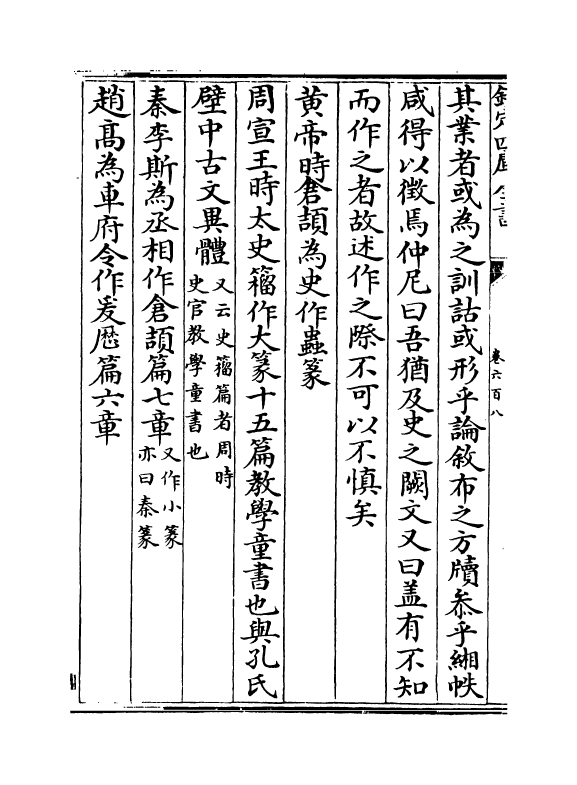 欽定四庫全書
卷六百八
其業者或為之訓詁或形乎論敘布之方牘叅乎緗帙
咸得以徵焉仲尼曰吾猶及史之闕文又曰盖有不知
而作之者故述作之際不可以不慎矣
黄帝時倉頡為史作蟲篆
周宣王時太史籀作大篆十五篇教學童書也與孔氏
壁中古文異體又云史籀篇者周時史官教學童書也
秦李斯為丞相作倉頡篇七章又作小篆亦曰秦篆
趙髙為車府令作爰厯篇六章